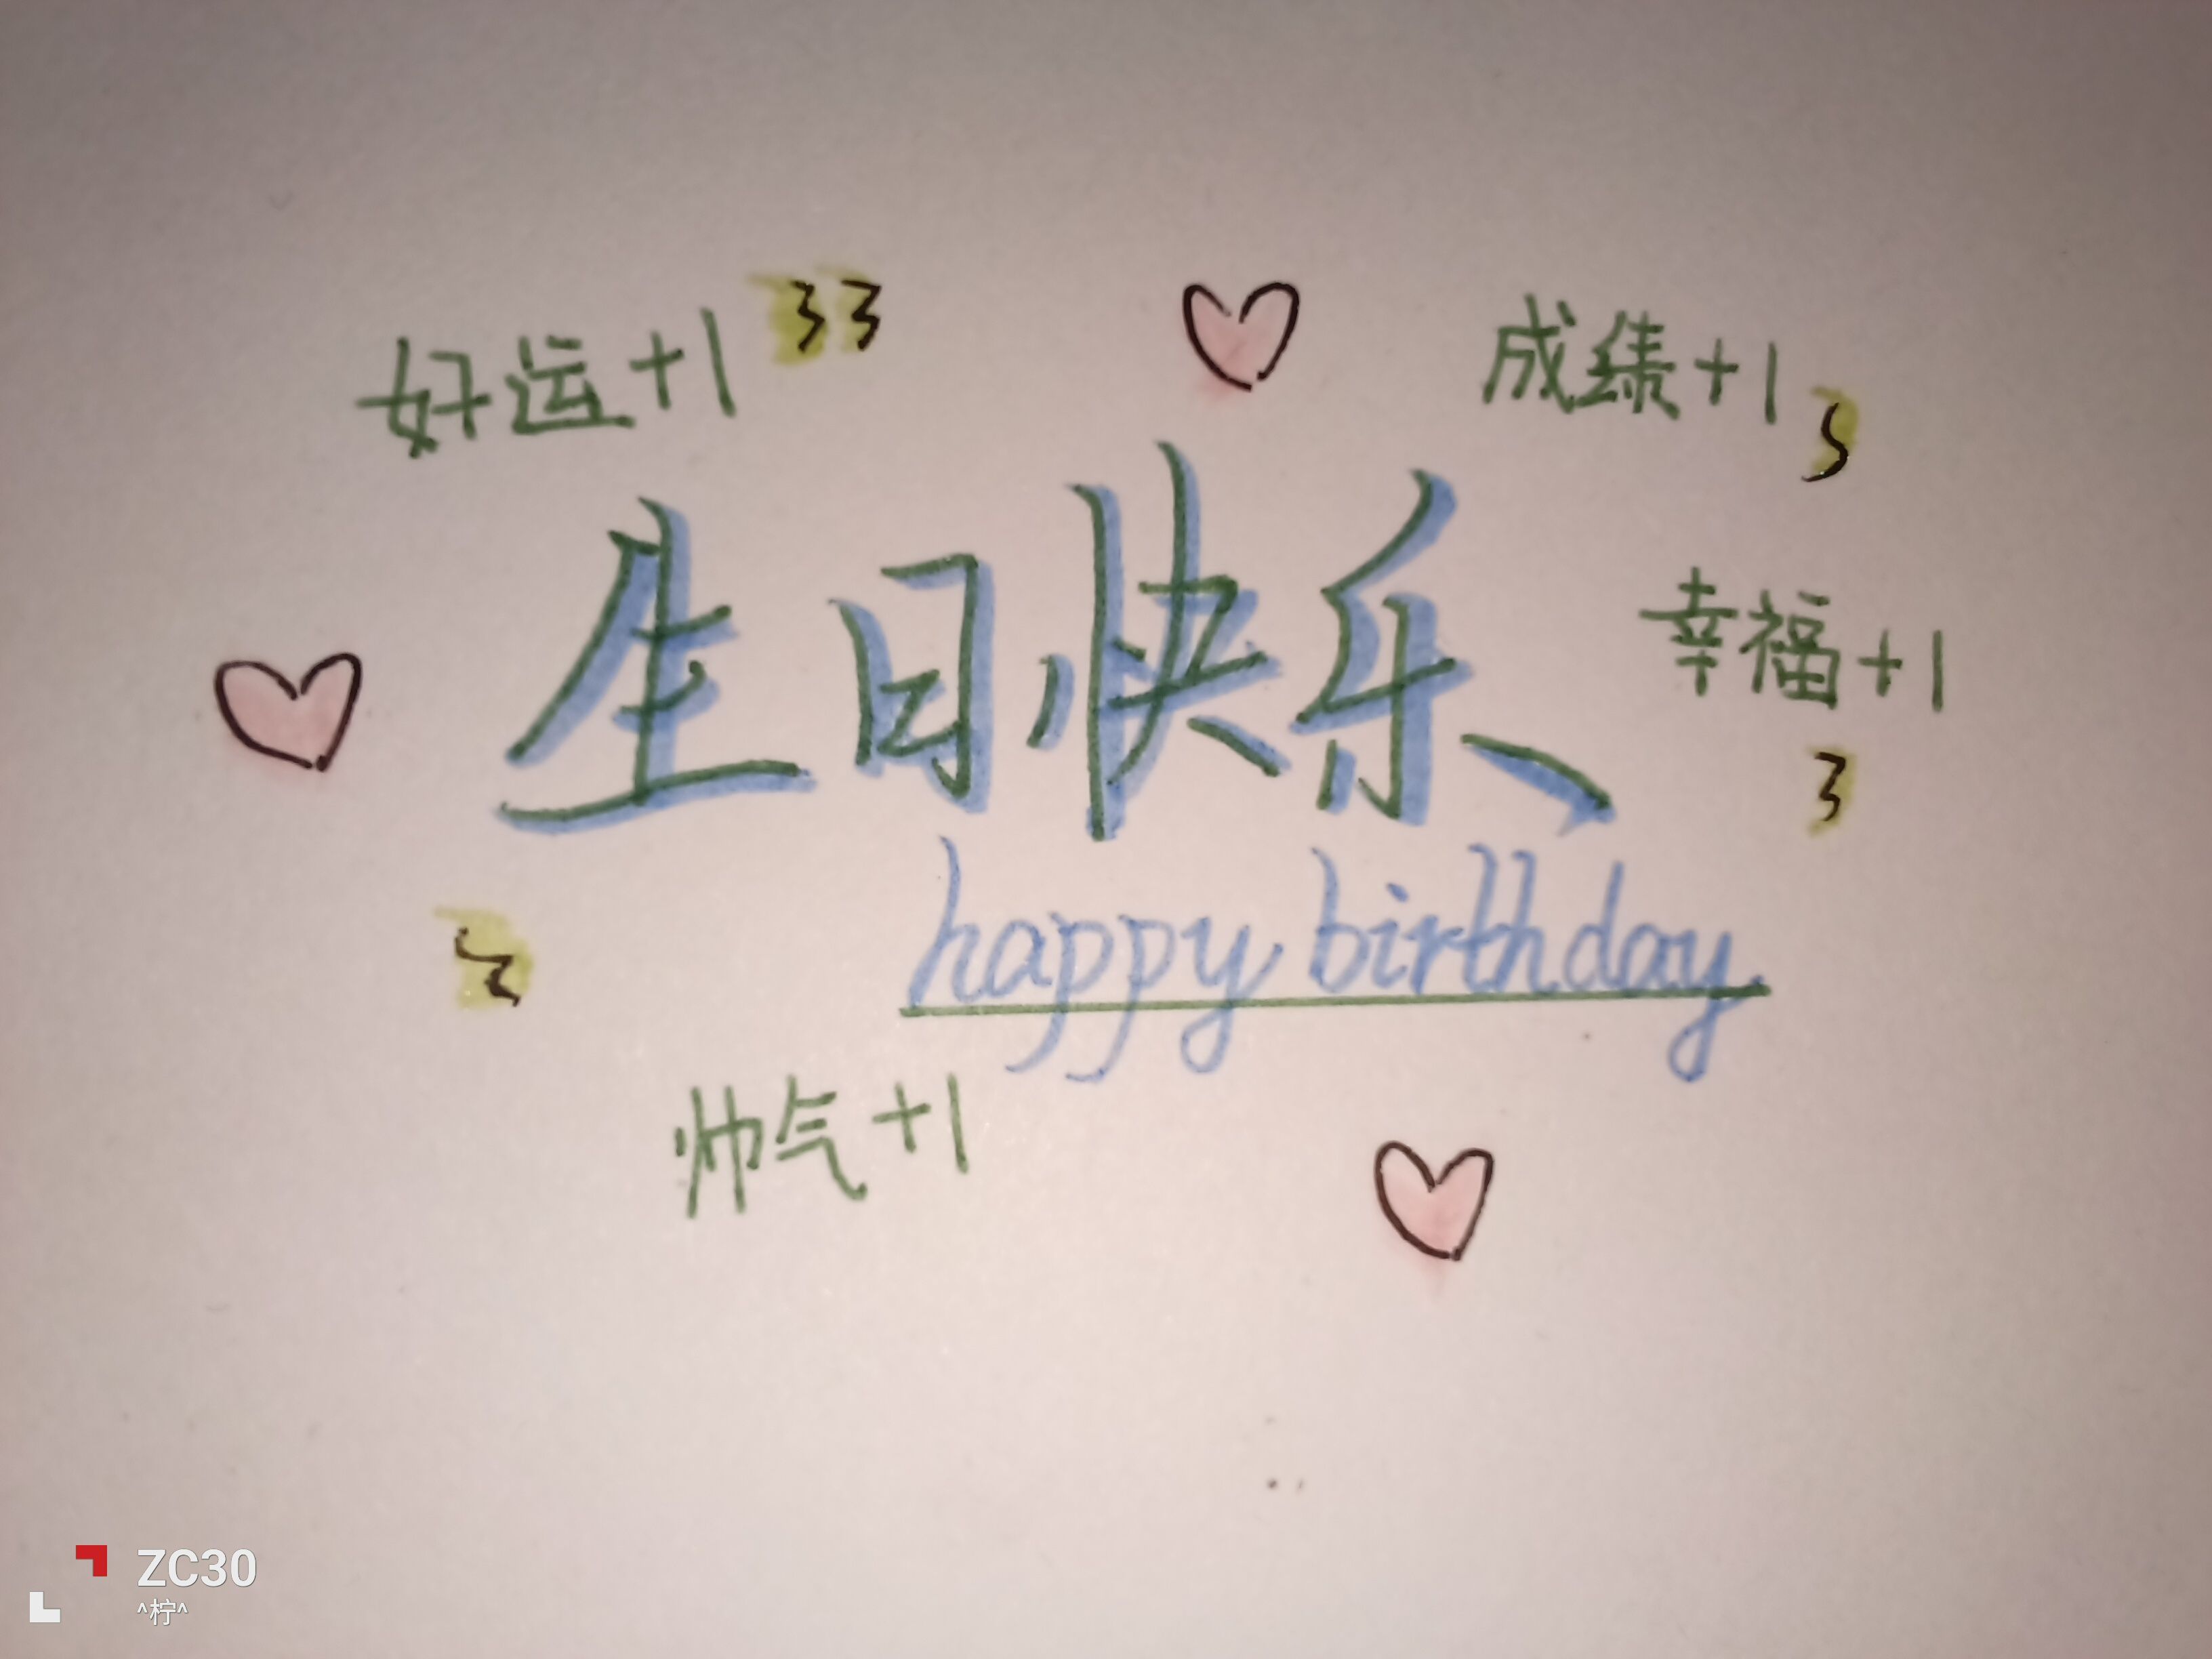 好运+1
33
成绩+1
3
生日快乐
幸福+1
3
happy birthday
帅气+1
ZC30
^柠^